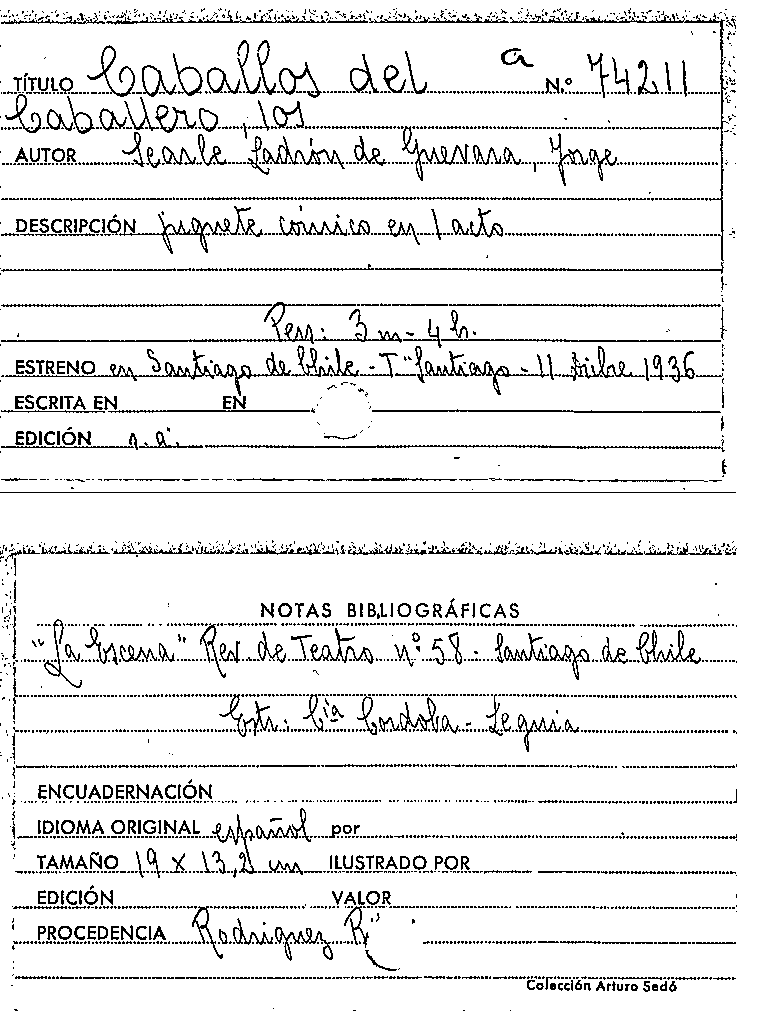 TÍTULO Caballos del a N.º 74211
Caballero, los
AUTOR Searle Ladrón de Guevara, Jorge
DESCRIPCIÓN juguete cómico en 1 acto
Pers: 3 m - 4 h.
ESTRENO en Santiago de Chile - Tº Santiago - 11 dicbre 1936
ESCRITA EN EN
EDICIÓN s.a.
NOTAS BIBLIOGRÁFICAS
"La Escena" Rev. de Teatro nº 58 - Santiago de Chile
Estr: Cía Cordoba - Leguia
ENCUADERNACIÓN
IDIOMA ORIGINAL español por
TAMAÑO 19 x 13,2 cm ILUSTRADO POR
EDICIÓN VALOR
PROCEDENCIA Rodriguez
Colección Arturo Sedó